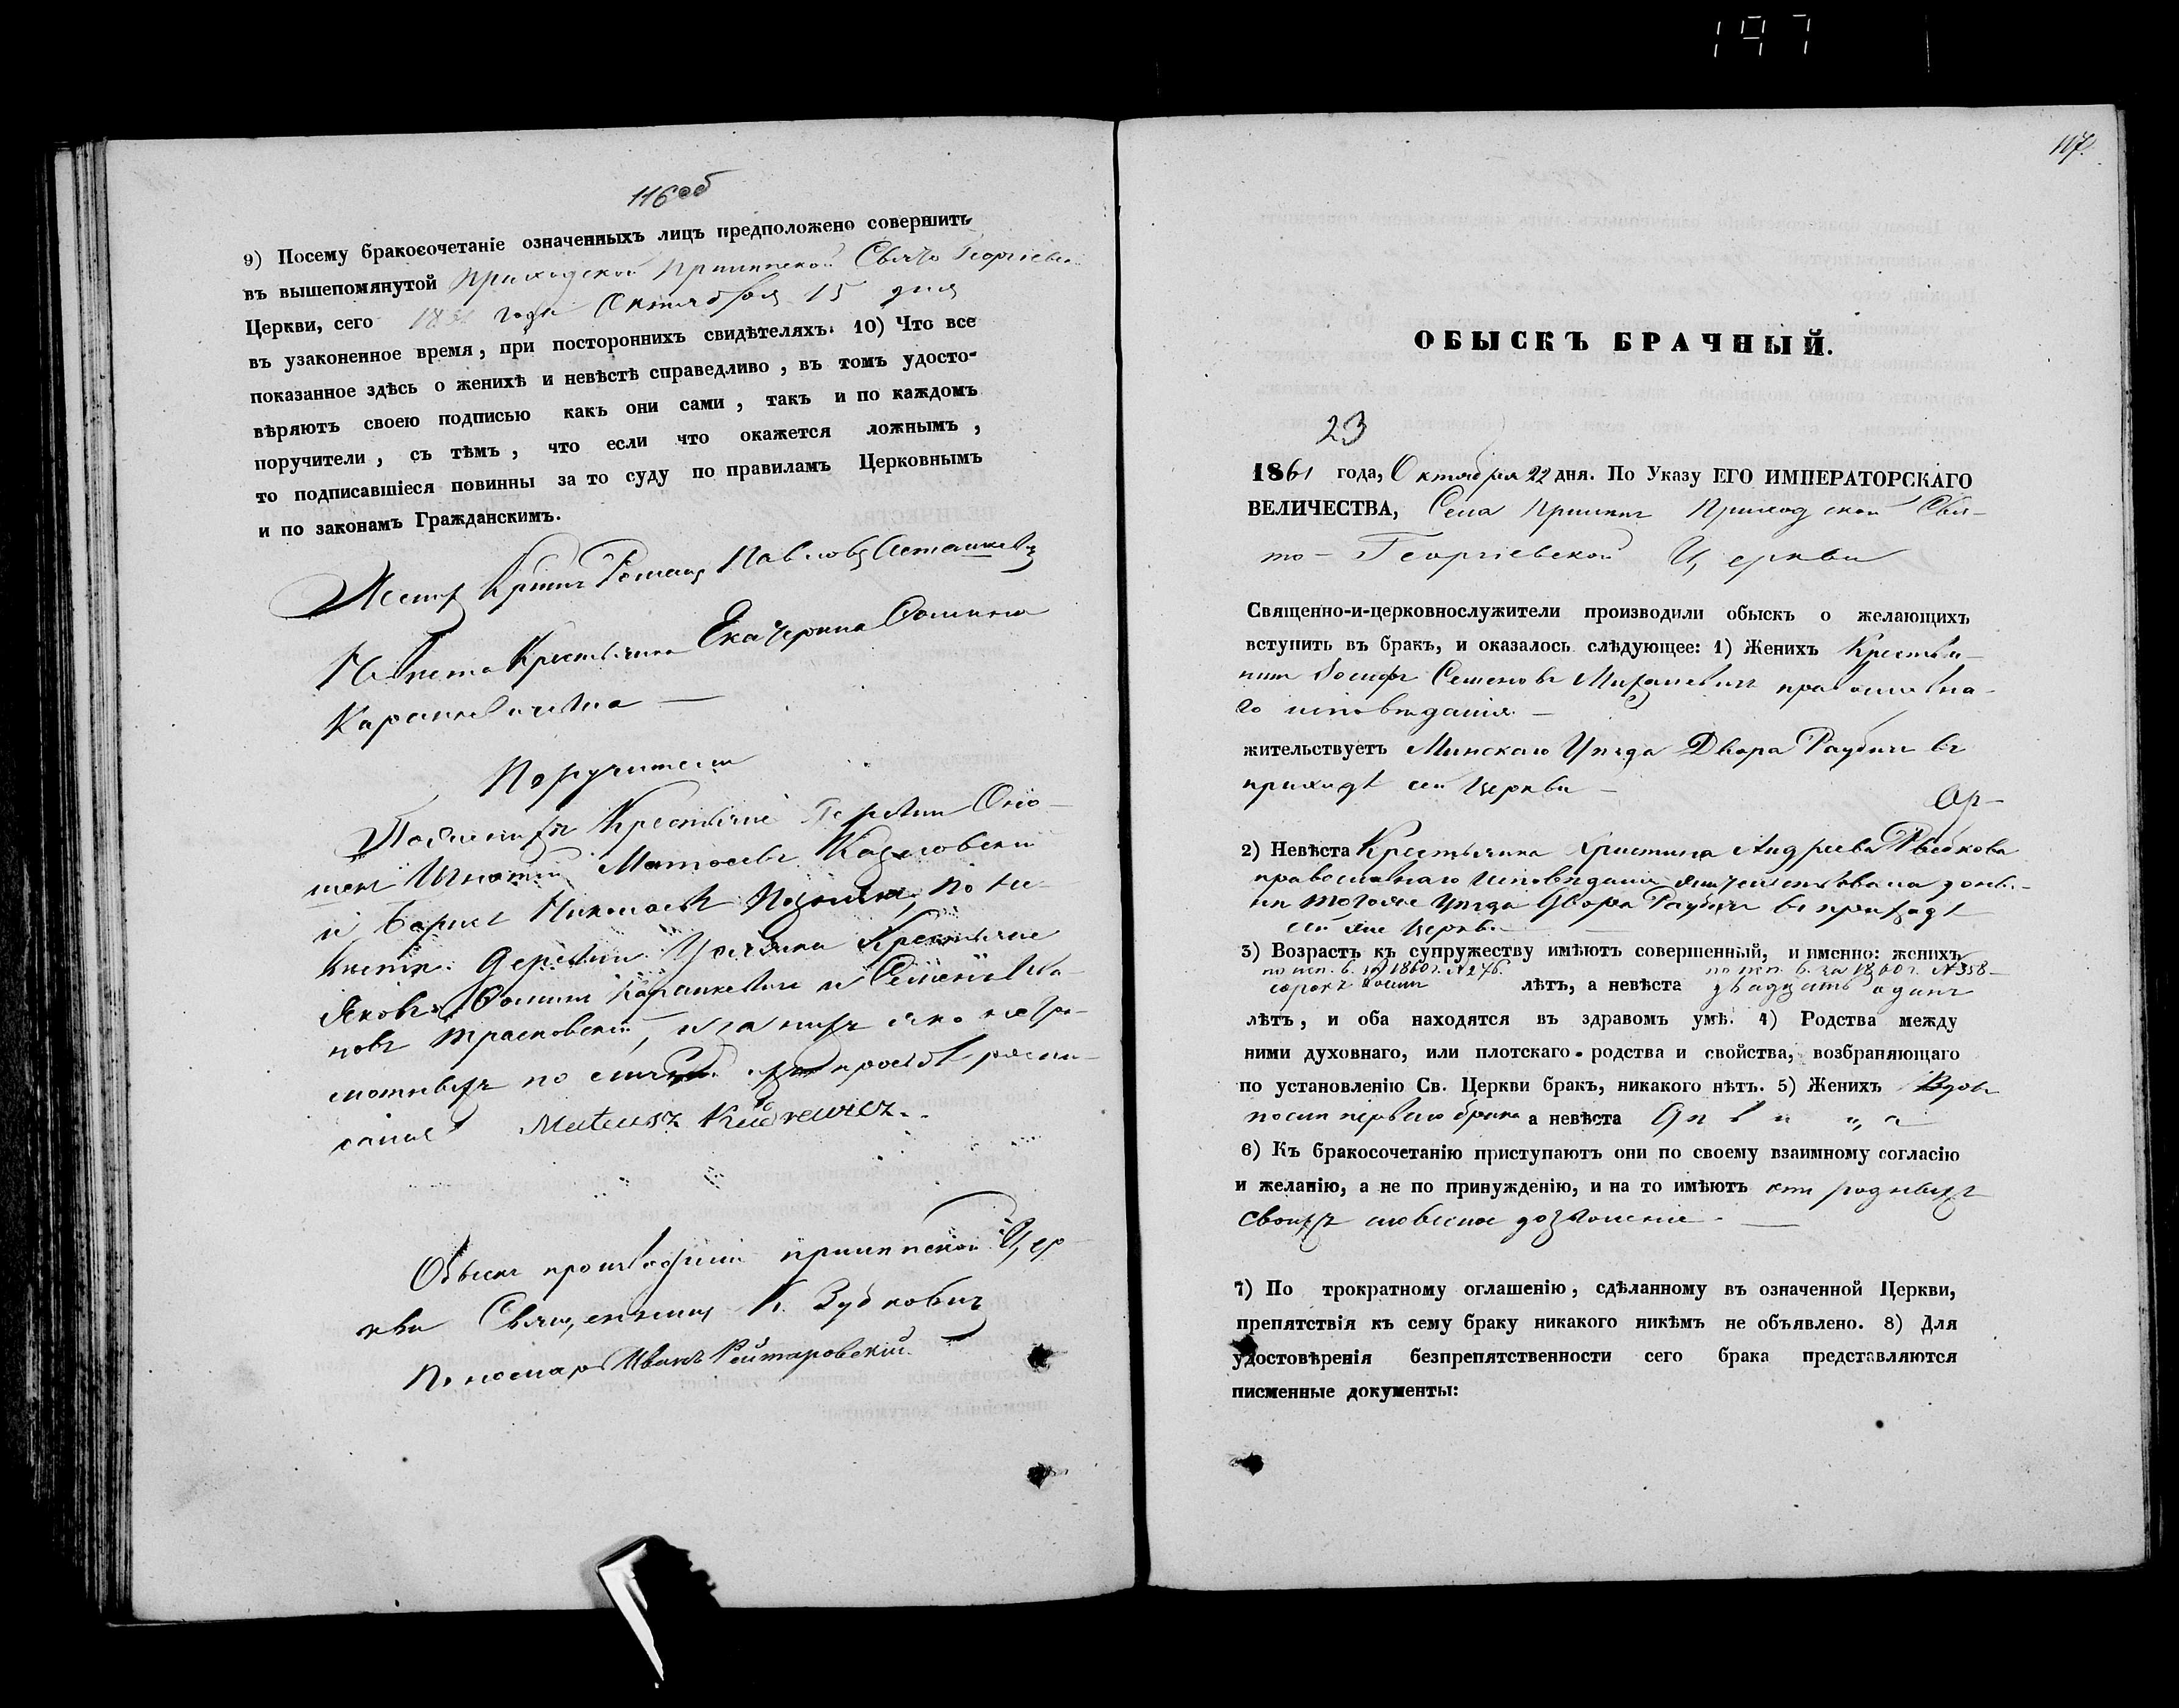 197
116 об
9) Посему бракосочетаніе означенныхъ лицъ предположено совершить
въ вышепомянутой приходской Свято Георгіевс
Церкви, сего года Октября 15 дня
въ узаконенное время, при постороннихъ свидѣтеляхъ. 10) Что все
показанное здѣсь о женихѣ и невѣстѣ справедливо, въ томъ удосто-
вѣряютъ своею подписью какъ они сами, такъ и по каждомъ
поручители, съ тѣмъ, что если что окажется ложнымъ,
то подписавшіеся повинны за то суду по правиламъ Церковнымъ
и по законамъ Гражданскимъ.
Романъ Павловъ Асташкевъ
Невѣста Крестьянка Екатерина Фомина
Поручители
По женихѣ Крестьяне Деревни
Игнатій Матѳеевъ Козловскій
и Борисъ Николаевъ по не-
вѣстѣ деревни Крестьяне
Яковъ Фоминъ и Семенъ Ива-
новъ Трасковскій, и за нихъ яко негра-
мотныхъ по просьбѣ распи-
сался Mateusz
Обыскъ производили Цер-
кви Священникъ К. Зубковичъ
Пономарь Иванъ Рейтаровскій
117.
ОБЫСКЪ БРАЧНЫЙ.
23
1861 года, Октября 22 дня. По Указу ЕГО ИМПЕРАТОРСКАГО
ВЕЛИЧЕСТВА, Села Приходской Свя-
то-Георгіевской Церкви
Священно-и-церковнослужители производили обыскъ о желающихъ
вступить въ бракъ, и оказалось слѣдующее: 1) Женихъ Крестья-
нинъ Іосифъ Семеновъ православна-
го исповѣданія
жительствуетъ Минскаго Уѣзда Двора Раубичъ въ
приходѣ сей Церкви
2) Невѣста Крестьянка Христина Андреева
православнаго исповѣданія жительствовала донынѣ
тогоже Уѣзда Двора Раубичъ въ приходѣ
сей же Церкви
3) Возрастъ къ супружеству имѣютъ совершенный, и именно: женихъ
по исп. в. за 1860 г. № 276 по исп. в. за 1860 г. № 358
сорокъ восемь лѣтъ, а невѣста двадцать одинъ
лѣтъ, и оба находятся въ здравомъ умѣ. 4) Родства между
ними духовнаго, или плотскаго родства и свойства, возбраняющаго
по установленію Св. Церкви бракъ, никакого нѣтъ. 5) Женихъ Вдовъ
послѣ перваго брака а невѣста Дѣвица
6) Къ бракосочетанію приступаютъ они по своему взаимному согласію
и желанію, а не по принужденію, и на то имѣютъ отъ родныхъ
своихъ словесное дозволеніе.
7) По трократному оглашенію, сдѣланному въ означенной Церкви,
препятствія къ сему браку никакого никѣмъ не объявлено. 8) Для
удостовѣренія безпрепятственности сего брака представляются
писменные документы: